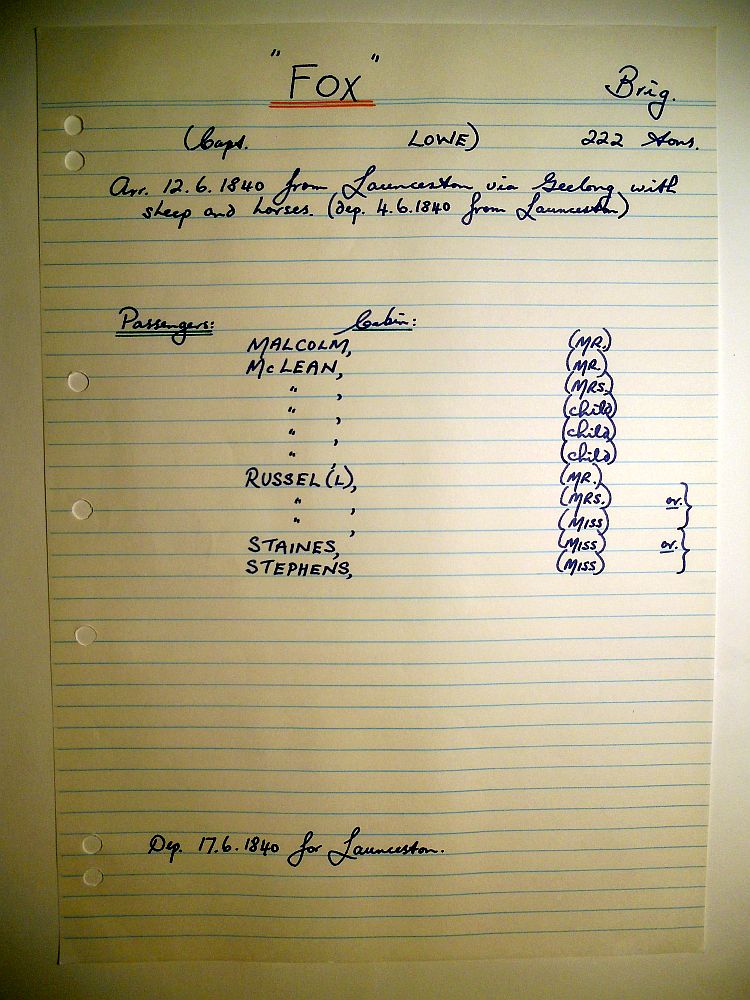 "FOX" Brig.
(Capt. LOWE) 222 tons.
Arr. 12.6.1840 from Launceston via Geelong with
sheep and horses. (Dep. 4.6.1840 from Launceston)
Passengers: Cabin:
MALCOLM, (MR.)
McLEAN, (MR.)
" , (MRS.)
" , (child)
" , (child)
" , (child)
RUSSEL(L), (MR.)
" , (MRS.) or. }
" , (MISS)
STAINES, (MISS) or. }
STEPHENS, (MISS)
Dep. 17.6.1840 for Launceston.